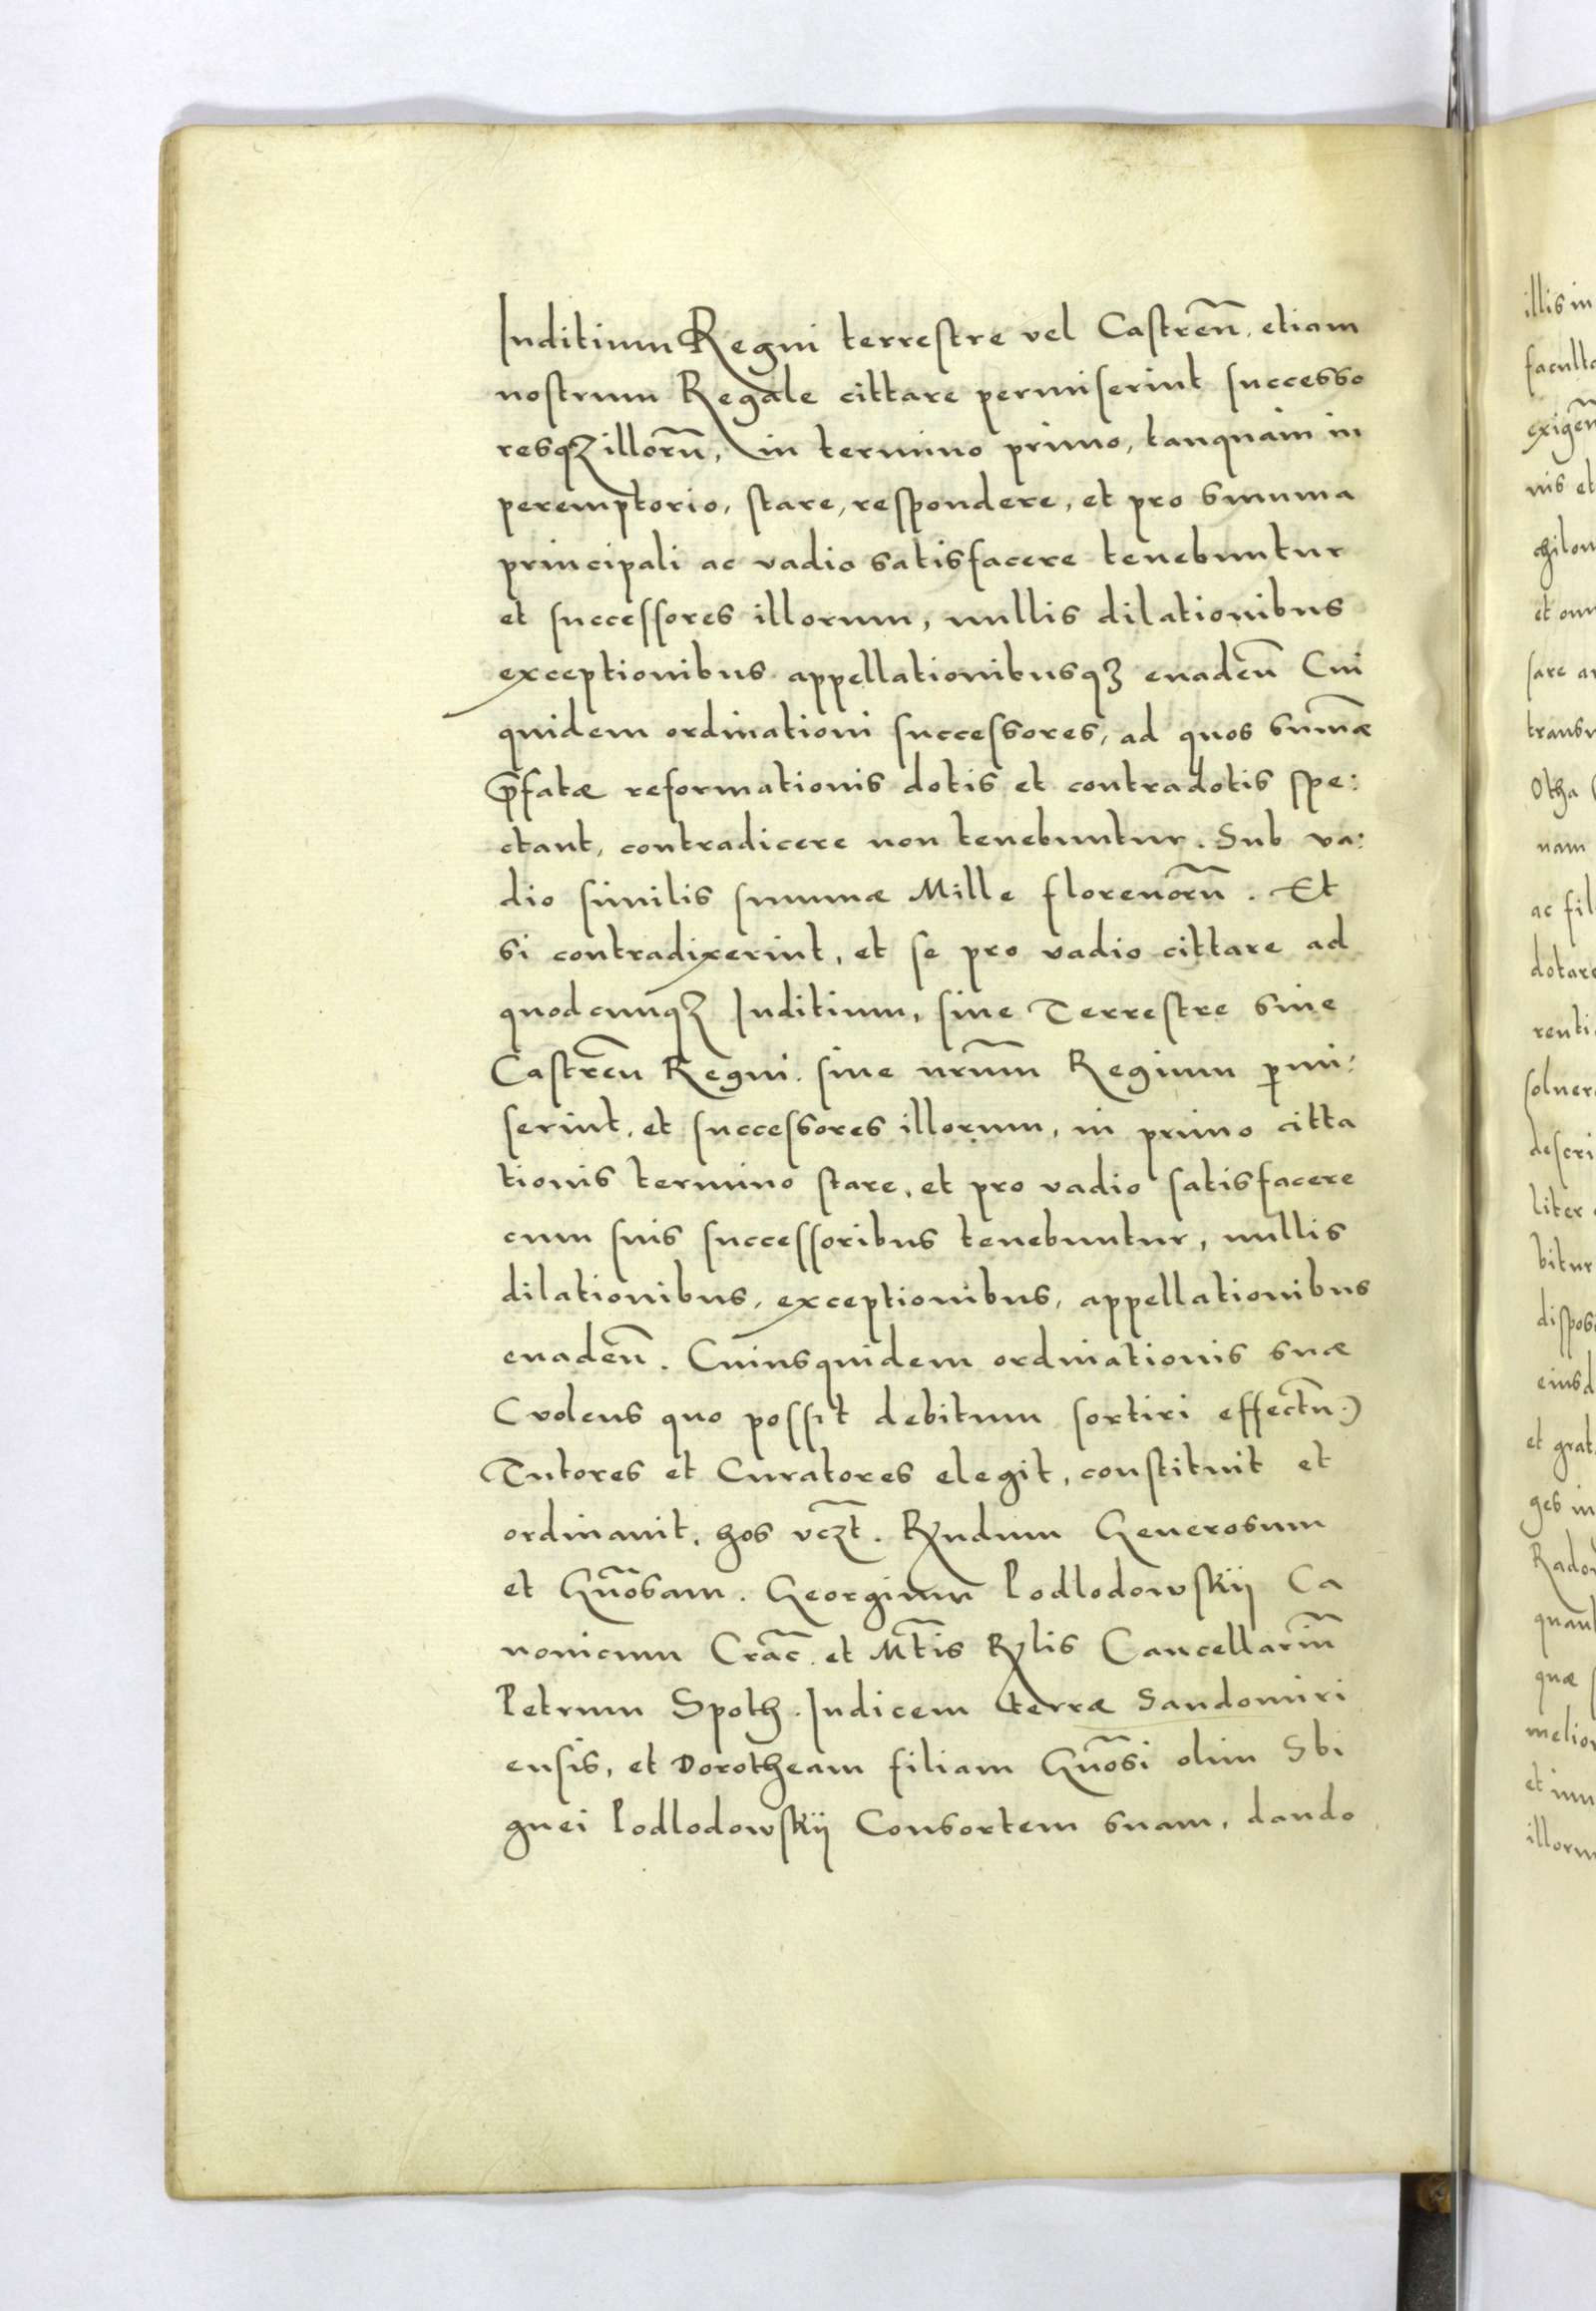 Iuditium Regni terrestre vel Castreñ. etiam
nostrum Regale cittare permiserint successo
resqꝫ illorũ, in termino primo, tanquam in
peremptorio, stare, respondere, et pro summa
principali ac vadio satisfacere tenebuntur
et successores illorum, nullis dilationibus
exceptionibus appellationibusqꝫ euadeñ Cui
quidem ordinationi successores, ad quos sum̃æ
p̃fatæ reformationis dotis et contradotis spe:
ctant, contradicere non tenebuntur. Sub va:
dio similis summæ Mille florenorũ. Et
si contradixerint, et se pro vadio cittare ad
quodcunqꝫ Iuditium, siue Terrestre siue
Castreñ Regni. siue nrũm Regium ꝑmi:
serint, et successores illorum, in primo citta
tionis termino stare, et pro vadio satisfacere
cum suis successoribus tenebuntur, nullis
dilationibus, exceptionibus, appellationibus
euadeñ. Cuiusquidem ordinationis suæ
(volens quo possit debitum sortiri effectũ.)
Tutores et Curatores elegit, constituit et
ordinauit, hos vcꝫt̃. Rꝫndum Generosum
et Gñosam. Georgium Podlodowskij Ca
nonicum Crac̃. et Mt̃is Rꝫlis Cancellariũ
Petrum Spoth. Iudicem terræ Sandomiri
ensis, et Dorotheam filiam Gñosi olim Sbi
gnei Podlodowskij Consortem suam, dando
illis in
nis et
et om
nam
ac fil
liter
bitur
et grat
ges in
quæ